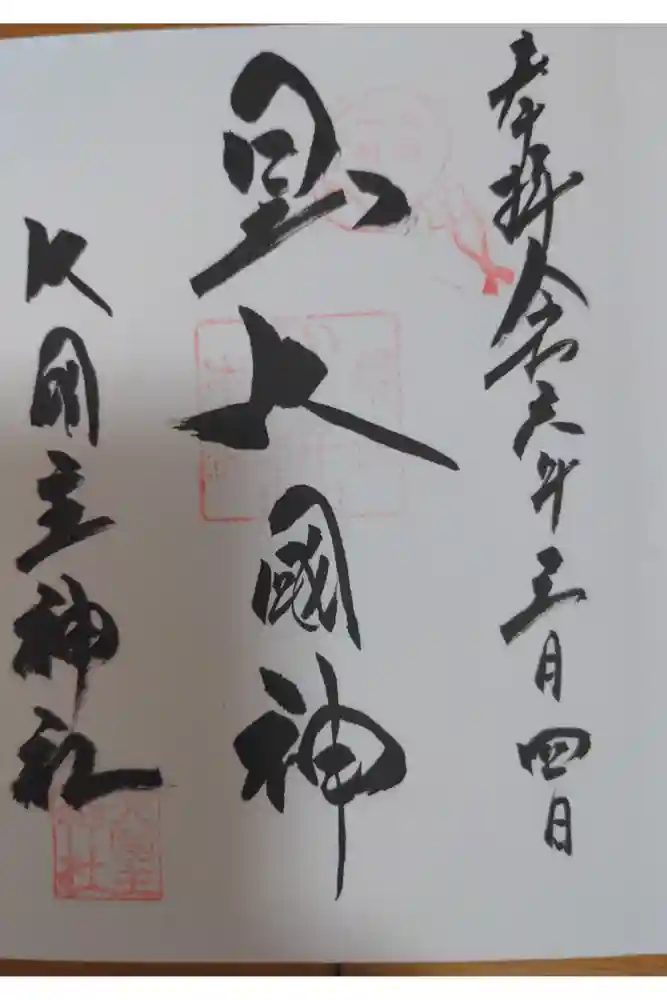 奉拝 令和六年三月四日
大國神
大國主神社